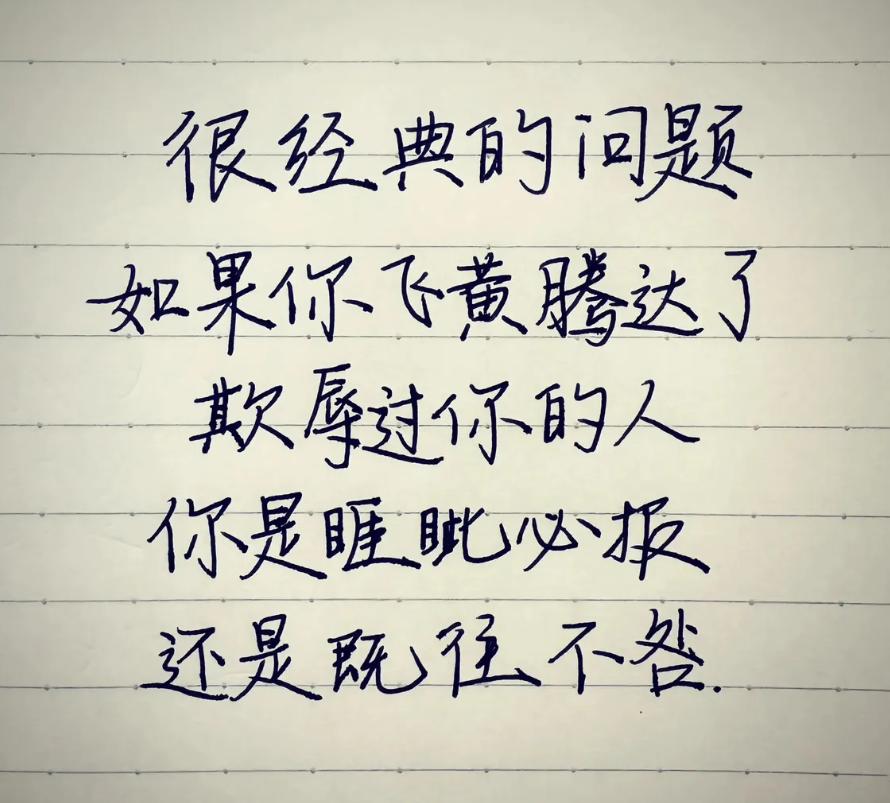 很经典的问题
如果你飞黄腾达了
欺辱过你的人
你是睚眦必报
还是既往不咎.